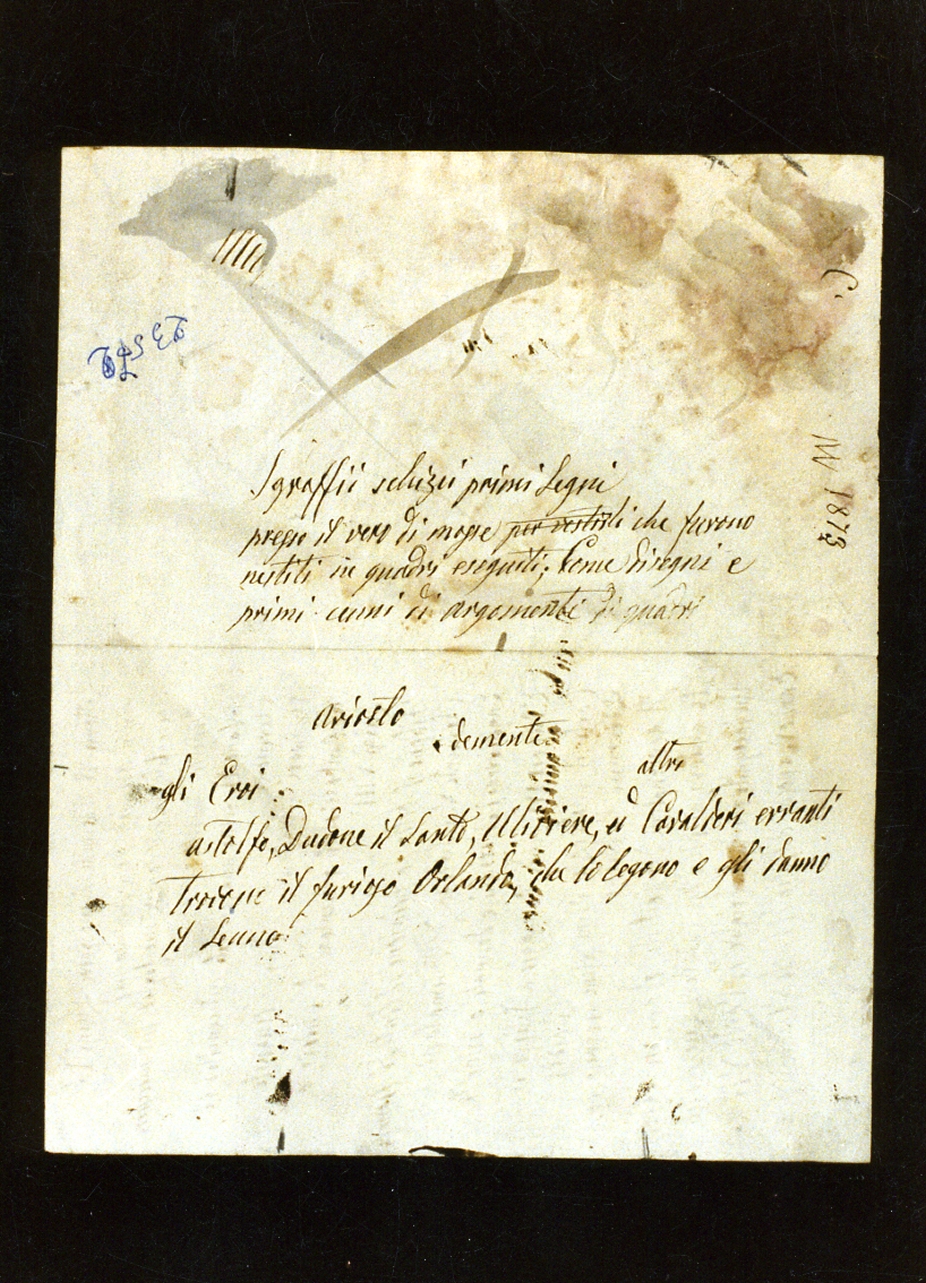 Sgraffii schizii primi Segni
presso il vero di mosse per vestirli che furono
vestiti in quadri eseguiti; Come disegni e
primi cenni di argomenti di quadri
Ariosto
demente
altri
gli Eroi
astolfo, Dudone il Santo, Uliviere, ed Cavalieri erranti
trovono il furioso Orlando, che lo legono e gli danno
il Senno
1873